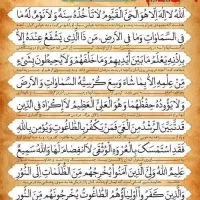 اللَّهُ لَا إِلَٰهَ إِلَّا هُوَ الْحَيُّ الْقَيُّومُ لَا تَأْخُذُهُ سِنَةٌ وَلَا نَوْمٌ لَهُ مَا
فِي السَّمَاوَاتِ وَمَا فِي الْأَرْضِ مَنْ ذَا الَّذِي يَشْفَعُ عِنْدَهُ إِلَّا
بِإِذْنِهِ يَعْلَمُ مَا بَيْنَ أَيْدِيهِمْ وَمَا خَلْفَهُمْ وَلَا يُحِيطُونَ بِشَيْءٍ
مِنْ عِلْمِهِ إِلَّا بِمَا شَاءَ وَسِعَ كُرْسِيُّهُ السَّمَاوَاتِ وَالْأَرْضَ
وَلَا يَئُودُهُ حِفْظُهُمَا وَهُوَ الْعَلِيُّ الْعَظِيمُ لَا إِكْرَاهَ فِي الدِّينِ
قَدْ تَبَيَّنَ الرُّشْدُ مِنَ الْغَيِّ فَمَنْ يَكْفُرْ بِالطَّاغُوتِ وَيُؤْمِنْ بِاللَّهِ
فَقَدِ اسْتَمْسَكَ بِالْعُرْوَةِ الْوُثْقَىٰ لَا انْفِصَامَ لَهَا وَاللَّهُ
اللَّهُ وَلِيُّ الَّذِينَ آمَنُوا يُخْرِجُهُمْ مِنَ الظُّلُمَاتِ إِلَى النُّورِ
وَالَّذِينَ كَفَرُوا أَوْلِيَاؤُهُمُ الطَّاغُوتُ يُخْرِجُونَهُمْ مِنَ النُّورِ